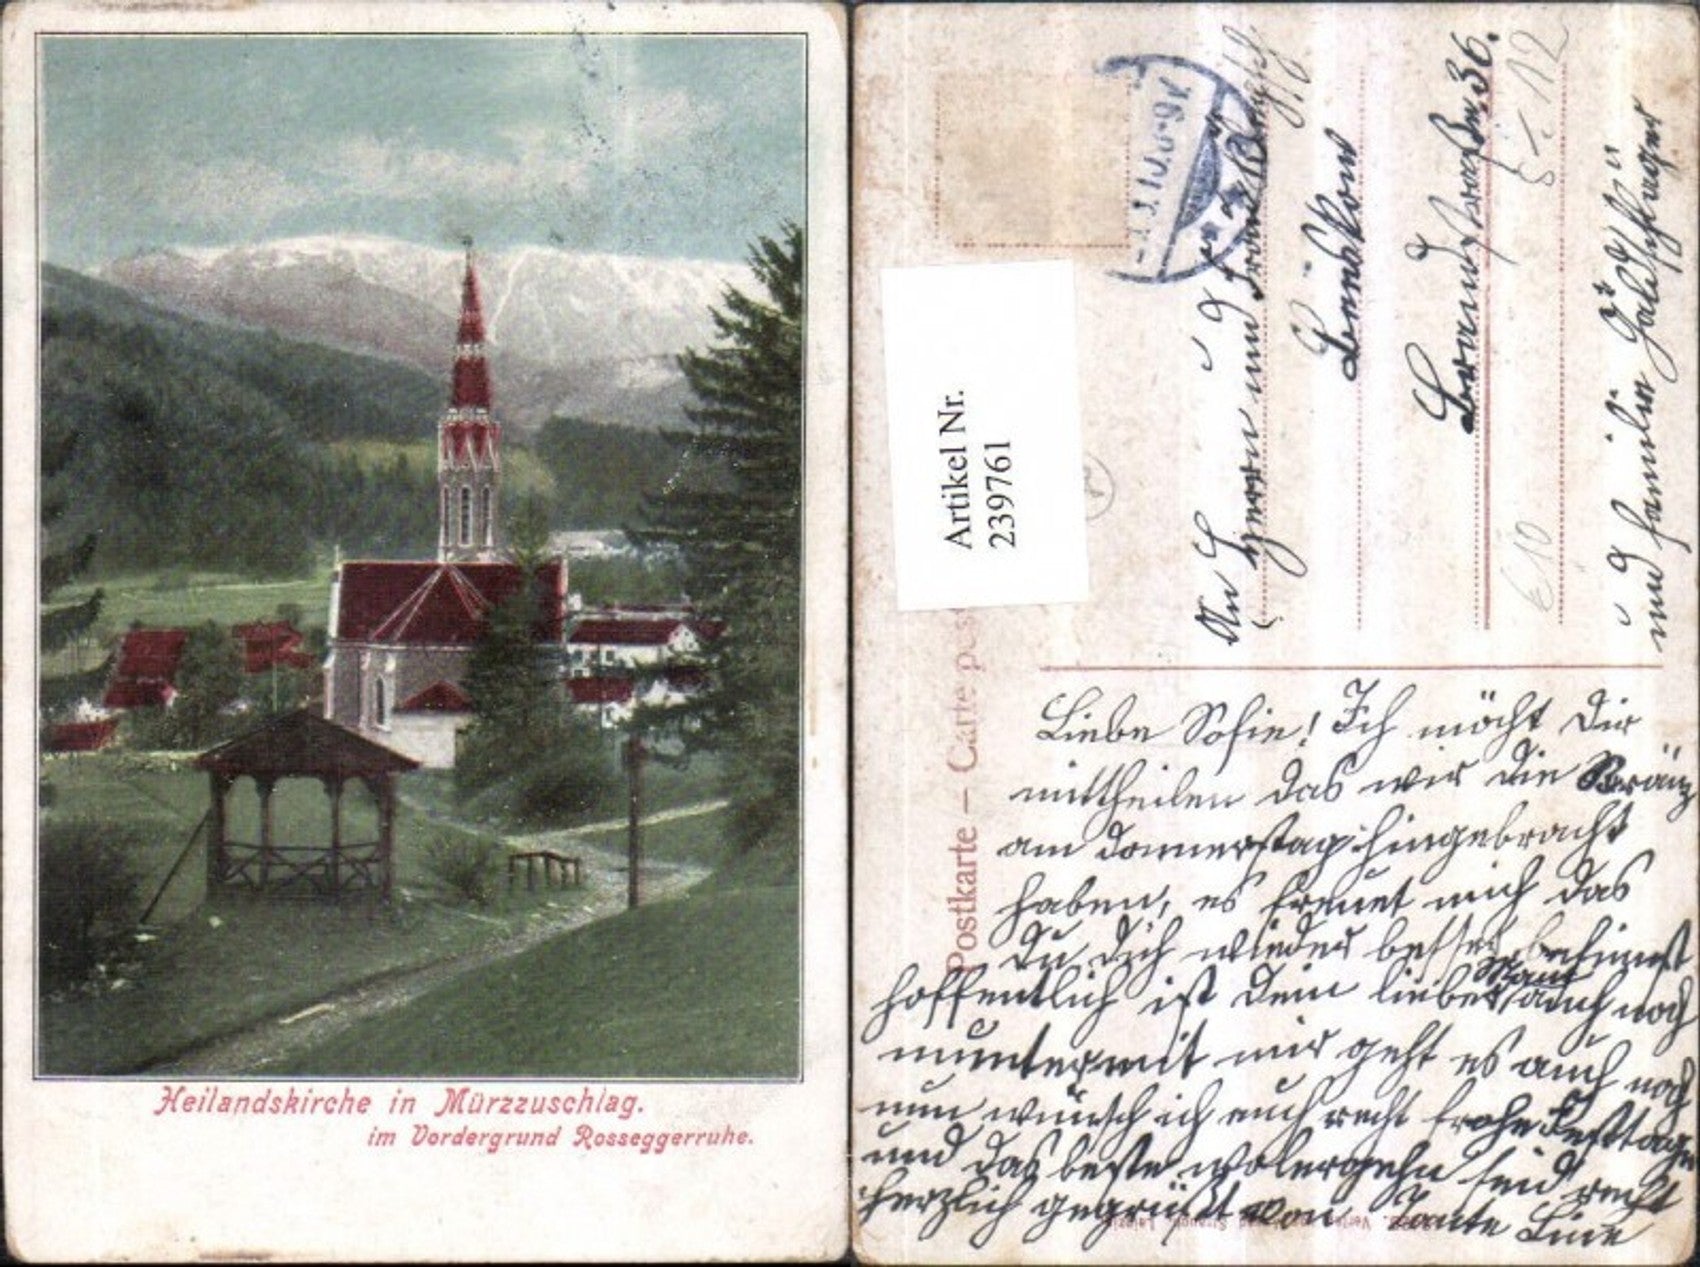 Heilandskirche in Mürzzuschlag.
im Vordergrund Rosseggerruhe.
Artikel Nr.
239761
Postkarte – Carte pos
An
Herrn und Frau
36.
5-. 12
€10
und Familie
Liebe Sofie! Ich möcht Dir
mittheilen das wir die Kränz
am Donnerstag hingebracht
haben, es freuet mich das
Du Dich wieder besser befinnest
hoffentlich ist Dein lieber Mann auch noch
munter mit mir geht es auch noch
nun wünsch ich euch recht frohe Festtage
und das beste wolergehn seid recht
herzlich gegrüßt von Tante Line